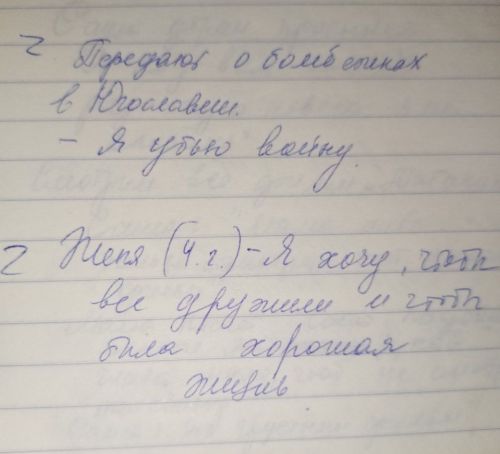 Передают о бомбёжках
в Югославии.
- Я убью войну.
Женя (4 г.) - Я хочу, чтобы
все дружили и чтобы
была хорошая
жизнь